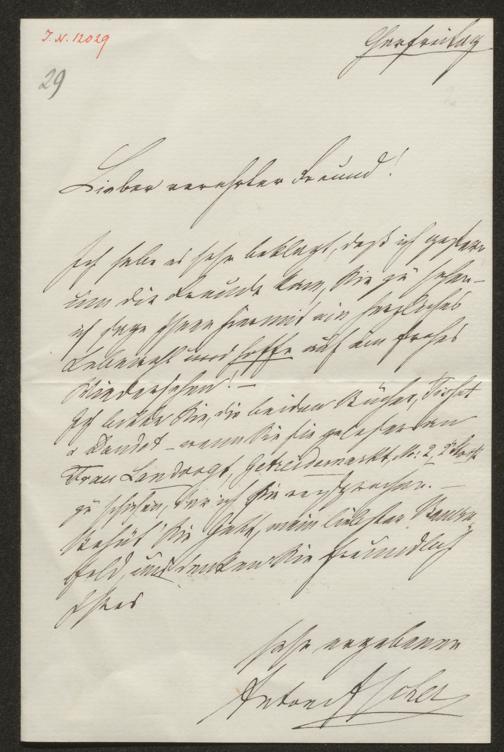 I.N. 12029
29
Charfreitag
Lieber verehrter Freund!
Ich habe es sehr beklagt, daß ich gestern
um die Freude kam, Sie zu sehen –
ich sage Ihnen hiermit ein herzliches
Lebewohl und hoffe auf ein frohes
Wiedersehen! –
Ich bitte Sie, die beiden Bücher,
– wenn Sie sie gelesen an
Frau Getreidemarkt, No: 2, 2.
zu schicken, der ich sie versprochen. –
Behüt' Sie Gott, mein liebster
feld, und denken Sie freundlich
Ihres
sehr ergebenen